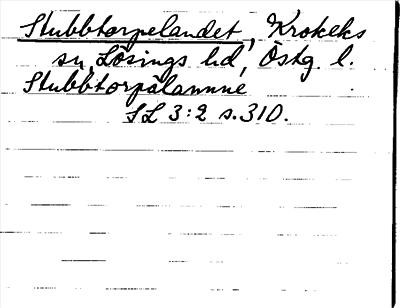 Stubbtorpelandet, Krokeks
sn, Lösings hd, Östg. l.
Stubbtorpalanne
SL 3:2 s. 310.